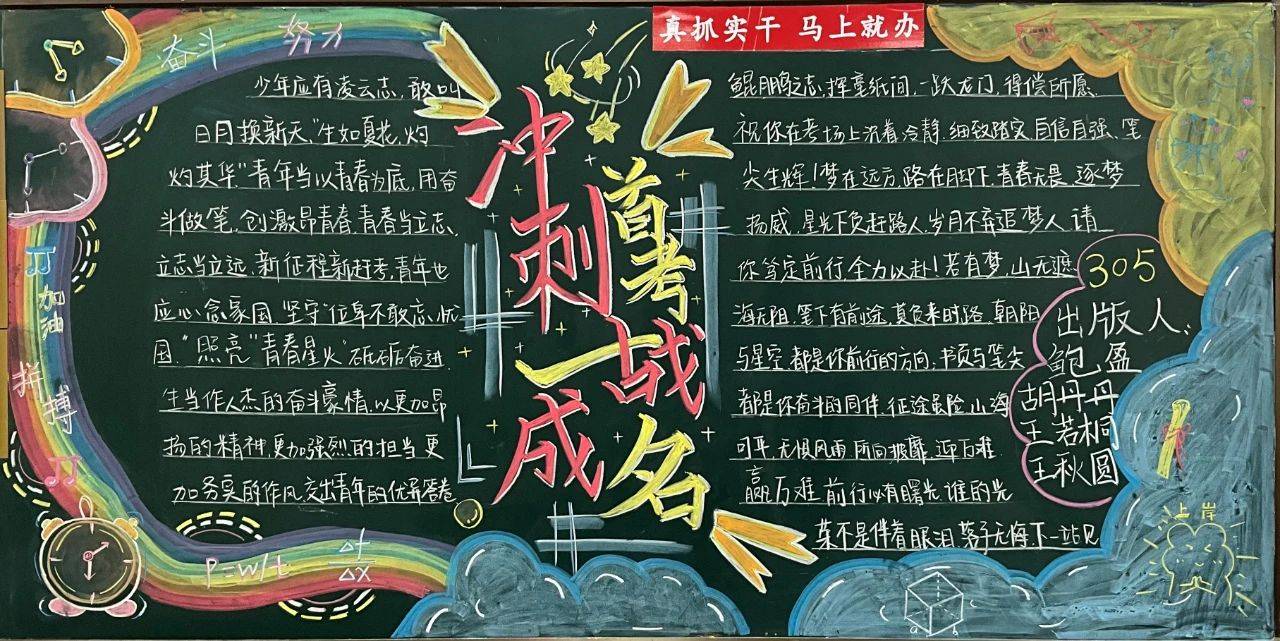 真抓实干 马上就办
奋斗 努力
加油
拼搏
P=W/t
Δf/Δx
少年应有凌云志,敢叫
日月换新天."生如夏花,灼
灼其华"青年当以青春为底,用奋
斗做笔,创激昂青春,青春当立志,
立志当立远,新征程新赶考,青年也
应心念家国,坚守"位卑不敢忘忧
国,"照亮"青春星火"砥砺奋进.
生当作人杰的奋斗豪情,以更加昂
扬的精神,更加强烈的担当更
加务实的作风交出青年的优异答卷
冲刺首考
一战成名
鲲鹏之志,挥毫纸间,一跃龙门,得偿所愿,
祝你在考场上沉着冷静,细致踏实,自信自强、笔
尖生辉!梦在远方,路在脚下,青春无畏,逐梦
扬威,星光下负赶路人,岁月不弃追梦人,请
你笃定前行全力以赴!若有梦,山无遮
海无阻,笔下有前途,莫负来时路,朝阳
与星空都是你前行的方向,书页与笔尖
都是你奋斗的同伴,征途虽险,山海
可平,无惧风雨,所向披靡,迎万难
赢万难 前行必有曙光 谁的光
荣不是伴着眼泪 落子无悔,下一站见
305
出版人:
鲍盈
胡丹丹
王若桐
王秋圆
上岸